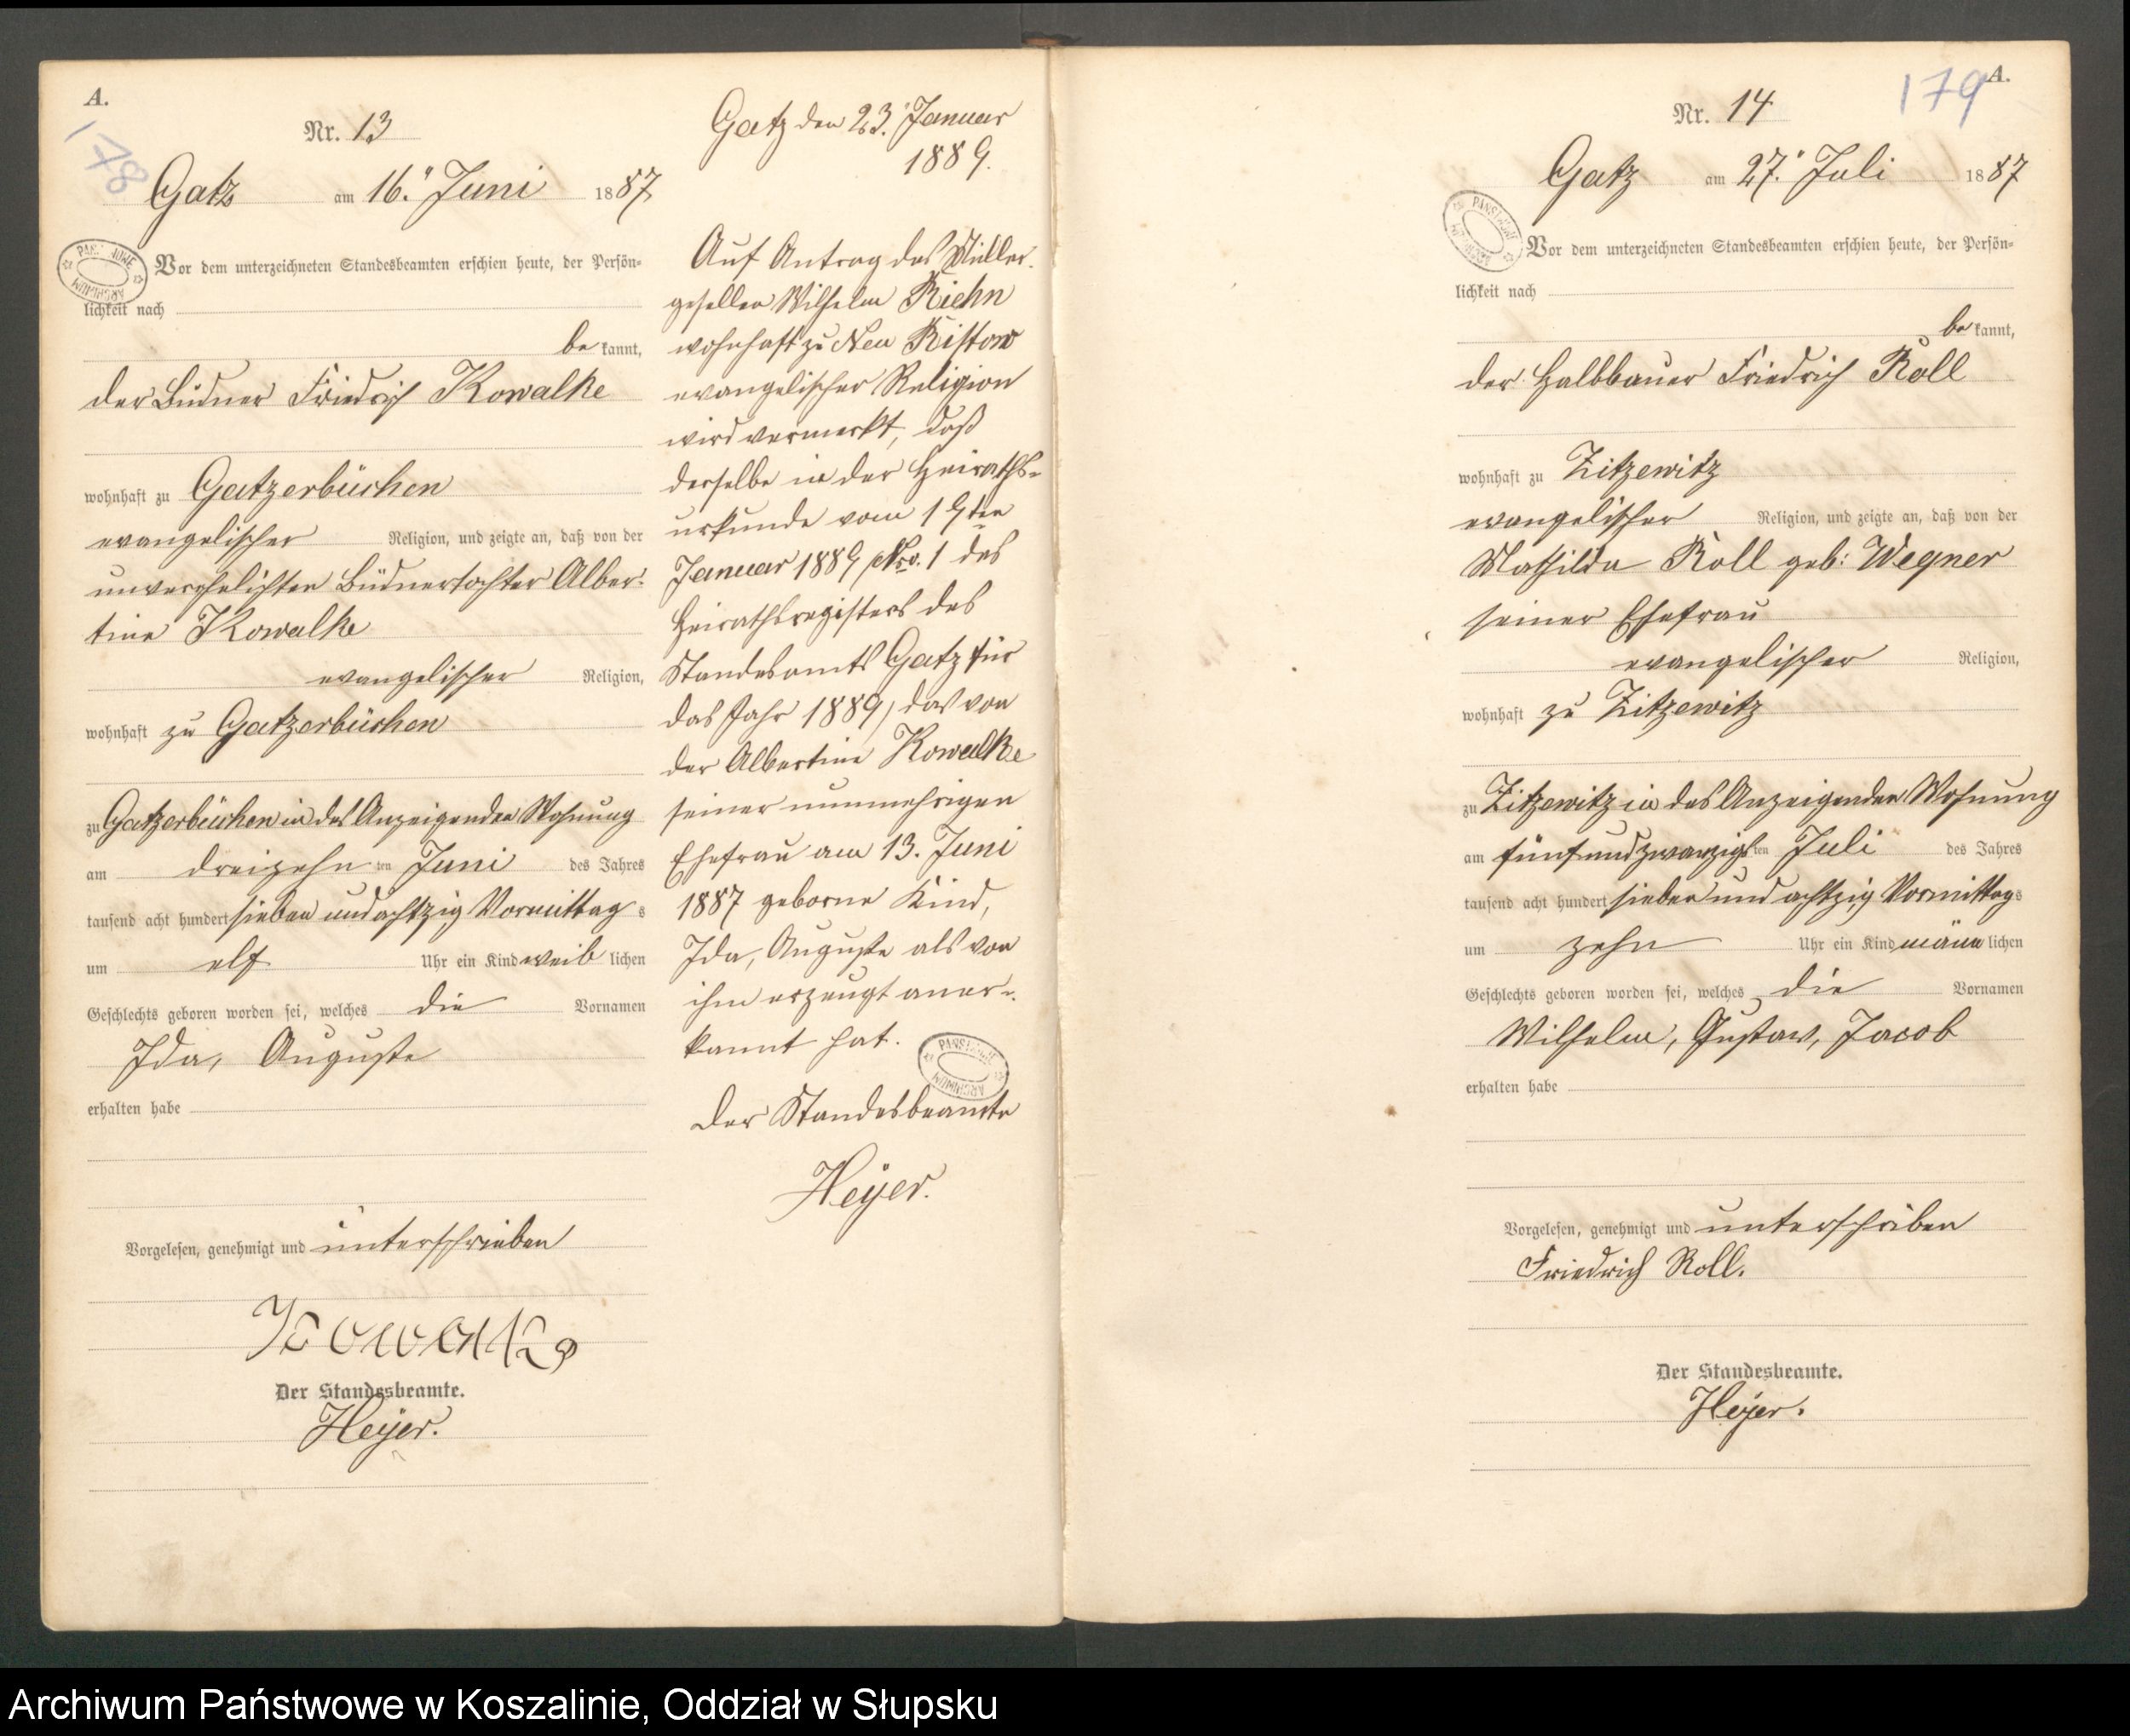 A.
178
Nr. 13
Gatz am 16. Juni 1887
Vor dem unterzeichneten Standesbeamten erschien heute, der Persön-
lichkeit nach
be kannt,
der Büdner Friedrich Kowalke
wohnhaft zu Gatzerbüchen
evangelischer Religion, und zeigte an, daß von der
unverehelichten Büdnertochter Alber-
tine Kowalke
evangelischer Religion,
wohnhaft zu Gatzerbüchen
zu Gatzerbüchen in des Anzeigenden Wohnung
am dreizehn ten Juni des Jahres
tausend acht hundert sieben und achtzig Vormittag s
um elf Uhr ein Kind weib lichen
Geschlechts geboren worden sei, welches die Vornamen
Ida, Auguste
erhalten habe
Vorgelesen, genehmigt und unterschrieben
Kowalke
Der Standesbeamte.
Heyer.
Gatz den 23. Januar
1889.
Auf Antrag des Müller-
gesellen Wilhelm Riehn
wohnhaft zu Neu Ristow
evangelischer Religion
wird vermerkt, daß
derselbe in der Heiraths-
urkunde vom 19ten
Januar 1889 Nro. 1 des
Heirathsregisters des
Standesamts Gatz für
das Jahr 1889, das von
der Albertine Kowalke
seiner nunmehrigen
Ehefrau am 13. Juni
1887 geborne Kind,
Ida, Auguste als von
ihm erzeugt aner-
kannt hat.
PAŃSTWOWE ARCHIWUM
Der Standesbeamte
Heyer.
179
A.
Nr. 14
Gatz am 27. Juli 1887
Vor dem unterzeichneten Standesbeamten erschien heute, der Persön-
lichkeit nach
be kannt,
der Halbbauer Friedrich Roll
wohnhaft zu Zitzewitz
evangelischer Religion, und zeigte an, daß von der
Mathilde Roll geb: Wegner
seiner Ehefrau
evangelischer Religion,
wohnhaft zu Zitzewitz
zu Zitzewitz in des Anzeigenden Wohnung
am fünfundzwanzigs ten Juli des Jahres
tausend acht hundert sieben und achtzig Vormittag s
um zehn Uhr ein Kind männ lichen
Geschlechts geboren worden sei, welches die Vornamen
Wilhelm, Gustav, Jacob
erhalten habe
Vorgelesen, genehmigt und unterschriben
Friedrich Roll.
Der Standesbeamte.
Heyer.
Archiwum Państwowe w Koszalinie, Oddział w Słupsku